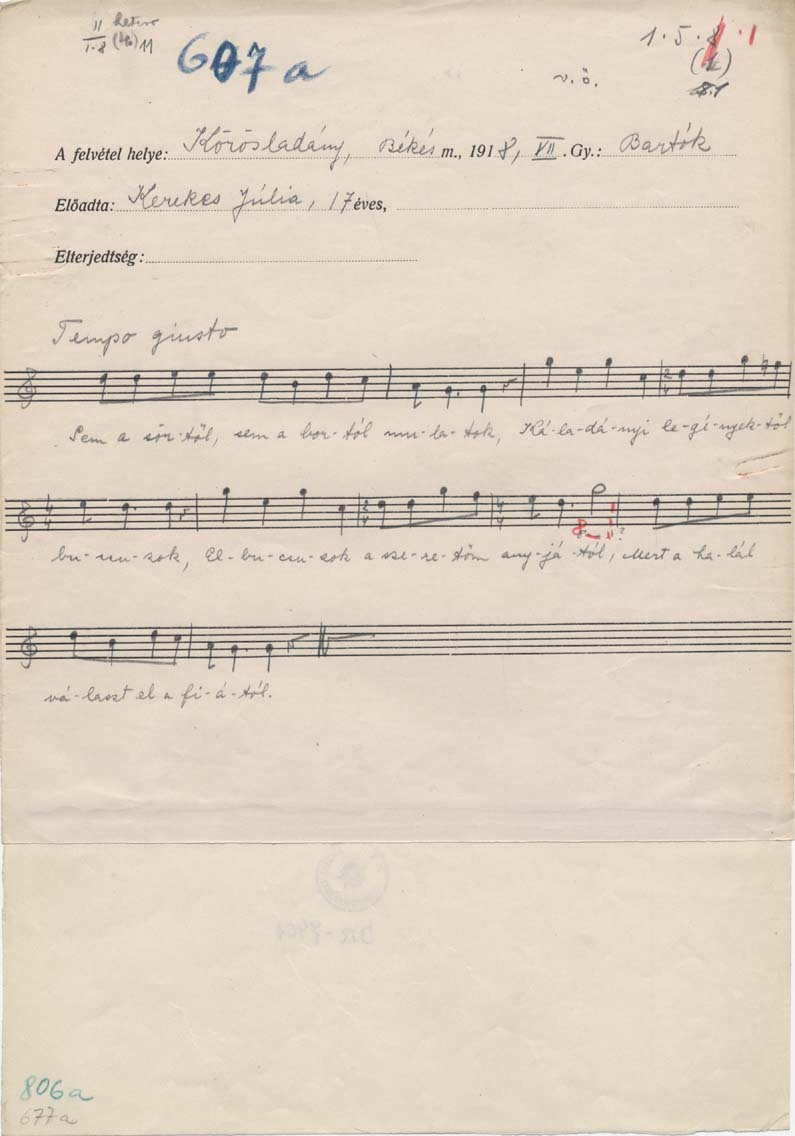 II
I.8
11
607 a
1.5.8.1
v.ö.
A felvétel helye: Körösladány, Békés m., 1918, VII. Gy.: Bartók
Előadta: Kerekes Júlia, 17 éves,
Elterjedtség:
Tempo giusto
Sem a sör-től, sem a bor-tól mu-la-tok, Ká-la-dá-nyi le-gé-nyek-től
El-bu-csu-zok a sze-re-tőm any-já-tól, Mert a ha-lál
vá-laszt el a fi-á-tól.
806a
677a